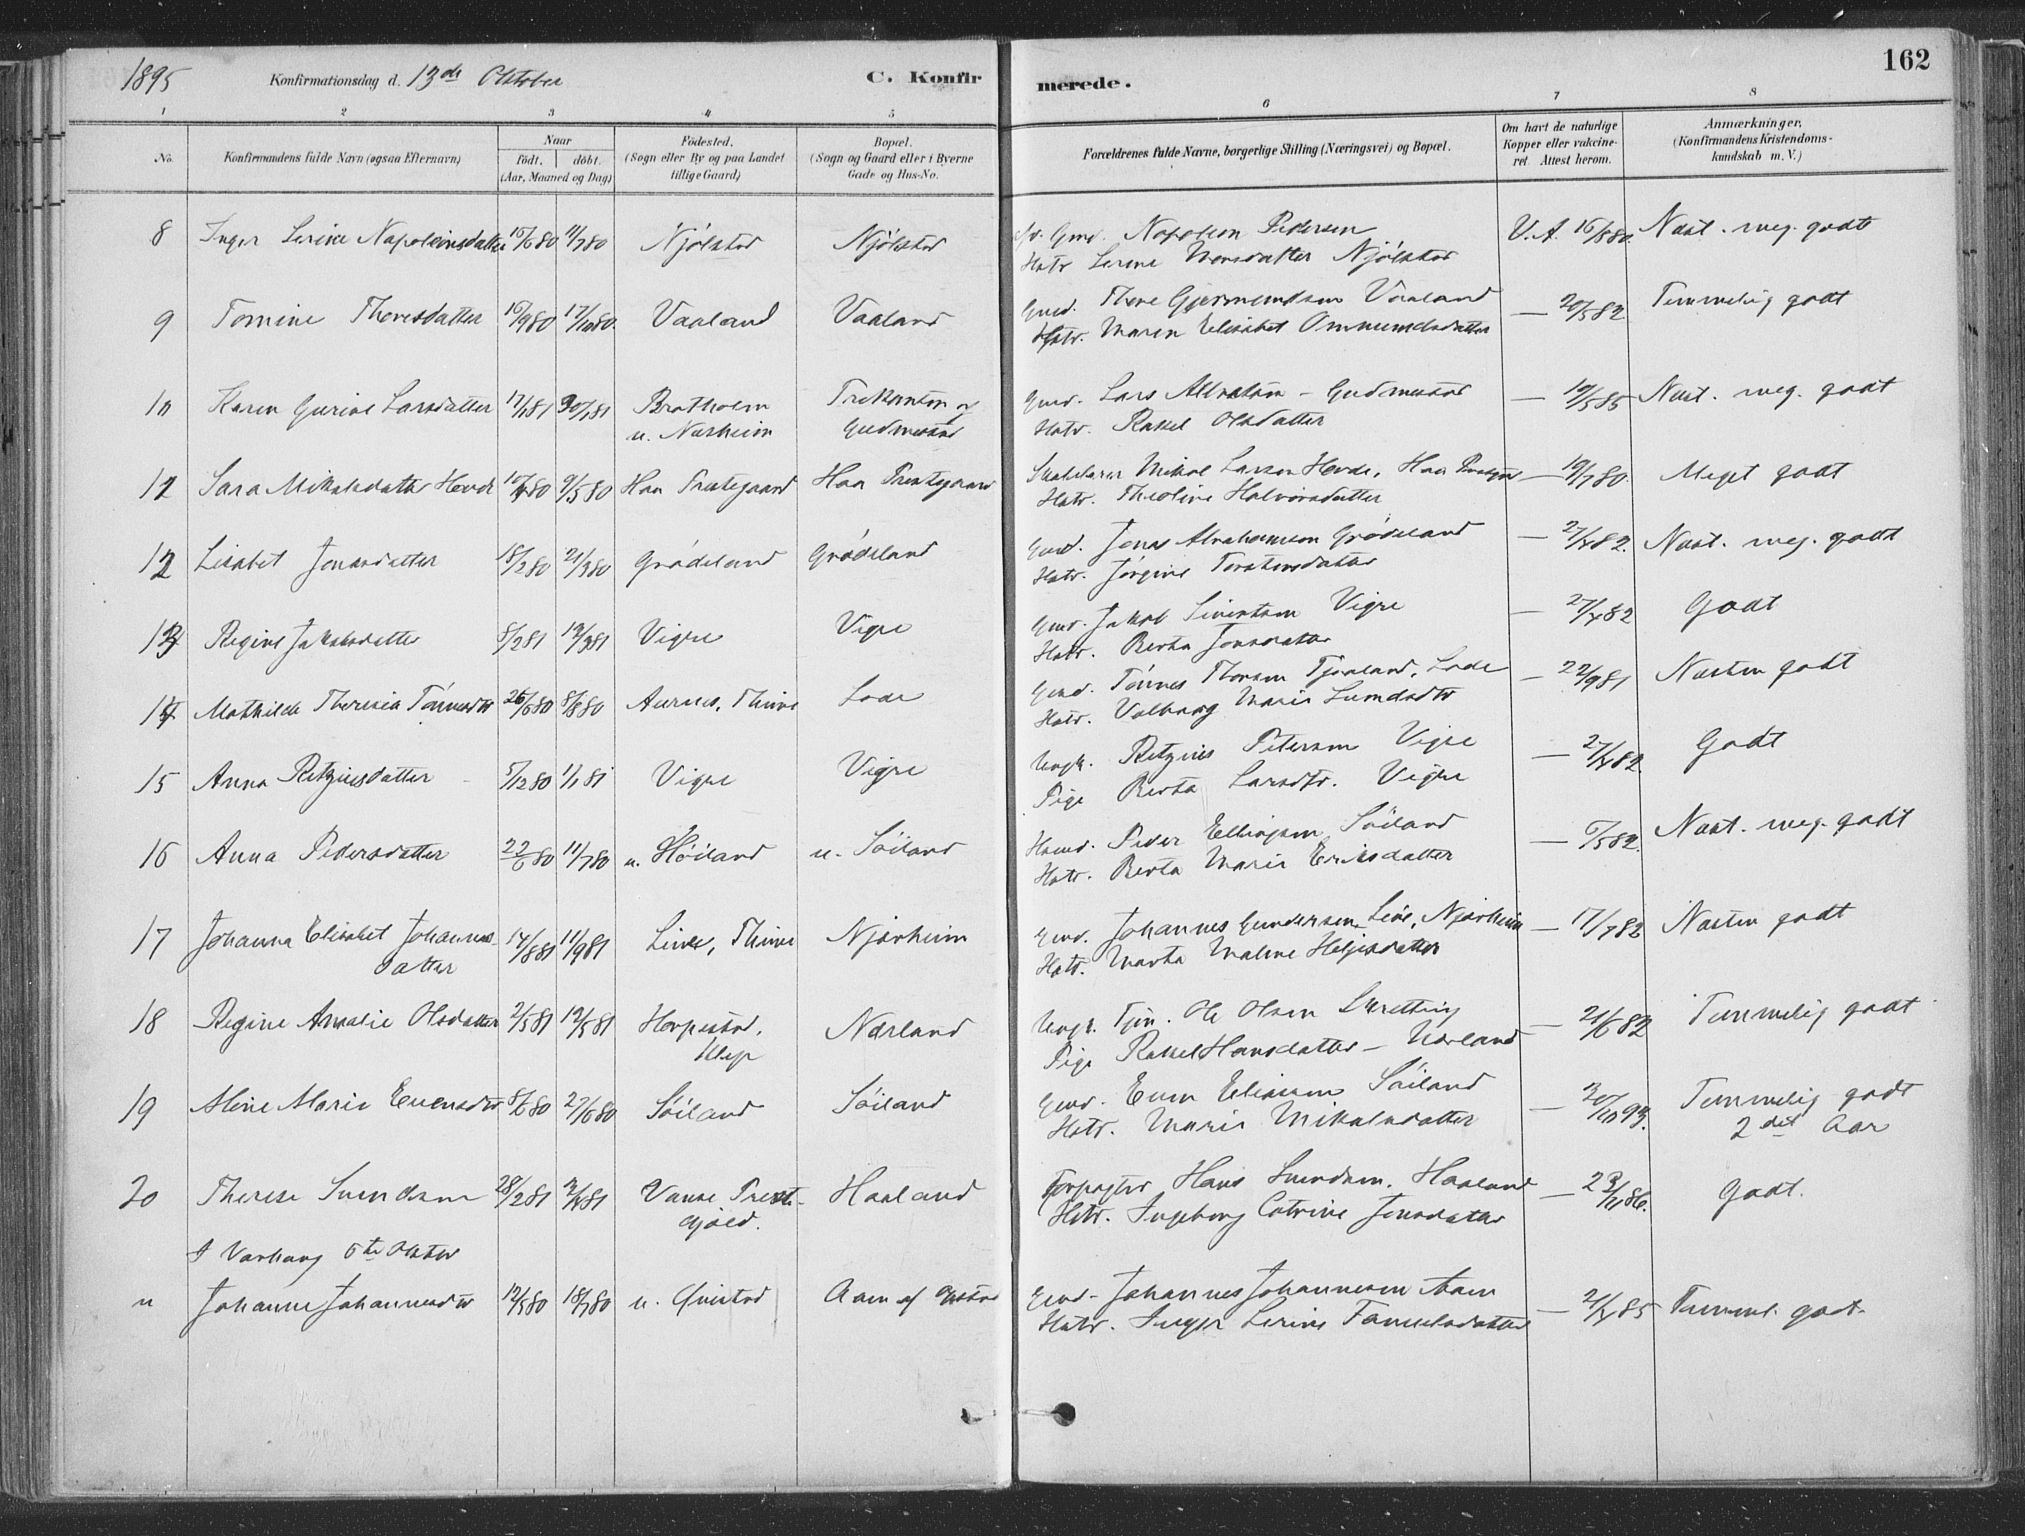 1895 Konfirmationsdag d. 13de Oktober C. Konfirmerede. 162
1 2 3 4 5 6 7 8
No. Konfirmandens fulde Navn (ogsaa Efternavn) Naar födt. döbt. (Aar, Maaned og Dag) Födested. (Sogn eller By og paa Landet tillige Gaard) Bopæl. (Sogn og Gaard eller i Byerne Gade og Hus-No. Forældrenes fulde Navne, borgerlige Stilling (Næringsvei) og Bopæl. Om havt de naturlige Kopper eller vakcineret Attest herom. Anmærkninger. (Konfirmandens Kristendomskundskab m. V.)
8 Inger Serine Napoleonsdatter 16/6 80 11/7 80 Njölstad Njölstad Gmd. Napoleon Pedersen V.A. 16/8 80 Næst. meg. godt
Hstr Serine Monsdatter Njölstad
9 Tomine Thoresdatter 16/9 80 17/10 80 Vaaland Vaaland Gmd. Thore Gjermundsen Vaaland — 20/5 82 Temmelig godt
Hstr. Maren Elisabet Ommundsdatter
10 Karen Gurine Larsdatter 17/1 81 30/1 81 Bratholm Trekanten af Gmd. Lars — Gudmestad — 19/5 85 Næst. meg. godt
u. Nærheim Gudmestad Hstr. Rakel Olsdatter
11 Sara Mikalsdatter Hovde 10/4 80 9/5 80 Haa Prestegaard Haa Prestegaard Skolelærer Mikal Larsen Hovde, Haa Prestegrd — 19/7 80 Meget godt
Hstr. Theoline Halvorsdatter
12 Lisabet Jonasdatter 18/2 80 21/3 80 Grödeland Grödeland Gmd. Jonas Abrahamsen Grödeland — 27/4 82. Næst. meg. godt
Hstr. Jörgine Torstensdatter
13 Regine Jakobsdatter 8/2 81 13/3 81 Vigre Vigre Gmd. Jakob Sivertsen Vigre — 27/4 82 Godt
Hstr. Berta Jonsdatter
14 Mathilde Theresia Tönnesdtr 26/6 80 8/8 80 Aurnes, Thime Lode Gmd. Tönnes Thorsen Tjoland, Lode — 22/9 81 Næsten godt
Hstr. Valborg Marie
15 Anna Retziusdatter 5/12 80 1/1 81 Vigre Vigre Ungk. Retzius Petersen Vigre — 27/4 82. Godt
Pige Berta Larsdtr. Vigre
16 Anna Pedersdatter 22/6 80 11/7 80 u. Höiland u. Söiland Hmd. Peder Ellingsen Söiland — 5/5 82. Næst. meg. godt
Hstr. Berta Marie Eriksdatter
17 Johanna Elisabet Johannes- 14/8 81 11/9 81 Line, Thime Njærheim Gmd. Johannes Gundersen Line, Njærheim — 17/7 83 Næsten godt
datter Hstr. Marta Malene Helgesdatter
18 Regine Amalie Olsdatter 2/5 81 19/5 81 Horpestad, Nærland Ungk. Tjen. Ole Olsen — 21/6 82 Temmelig godt
Klep Pige Rakel Hansdatter — Nærland
19 Aline Marie Evensdtr 8/6 80 27/6 80 Söiland Söiland Gmd. Even Eliassen Söiland — 30/10 93. Temmelig godt
Hstr. Marie Mikalsdatter 2det Aar
20 Therese Svendsen 28/2 81 3/4 81 Vanse Preste- Haaland Forpagter Hans Svendsen, Haaland — 23/11 86. Godt.
gjeld. Hstr. Ingeborg Catrine Jensdatter
I Varhaug 6te Oktbr
u Johanne Johannesdtr 12/5 80 18/7 80 u. Qvistad Aam af Gmd. Johannes Johannesen Aam — 21/4 85 Temml. godt.
Hstr. Inger Serine